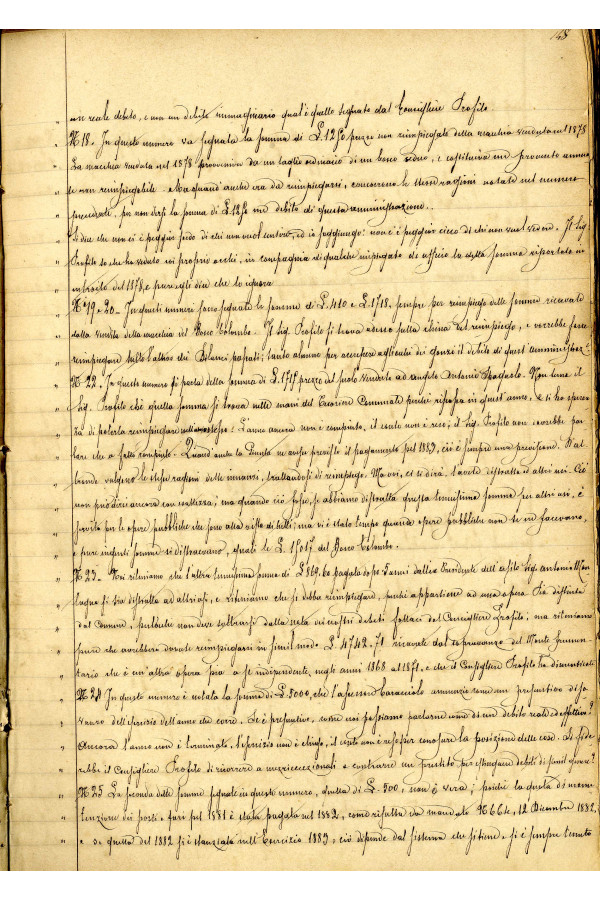 148
un reale debito, e non un debito immaginario qual'è quello segnato dal Consigliere Profilo
N. 18. In questo numero va segnata la somma di L. 1250 prezzo non reimpiegato della macchia venduta nel 1878
La macchia venduta nel 1878 proveniva da un taglio ordinario di un bosco ceduo, e costituiva un provento annua
le non reimpiegabile. Ma quand'anche era da reimpiegarsi, concorrono le stesse ragioni notate nel numero
precedente, per non dirsi la somma di L. 1250 un debito di questa amministrazione.
Si dice che non ci è peggior sordo di chi non vuol sentire, ed io soggiungo: non c'è peggior cieco di chi non vuol vedere. Il Sig.
Profilo sa che ha veduto coi proprio occhi, in compagnia di qualche impiegato di ufficio la detta somma riportata in
introito del 1878, e pure egli dice che lo ignora
N.i 19 e 20. In questi numeri sono segnate le somme di L. 410 e L. 1718, sempre per reimpiego delle somme ricavate
dalla vendita della macchia del Bosco Colombo. Il Sig. Profilo si trova adesso sulla china del reimpiego, e vorrebbe fare
reimpiegare tutto l'attivo dei Bilanci passati; tanto almeno per accrescere agli occhi dei gonzi il debito di quest'amministraz.
N. 22. In questo numero si parla della somma di L. 1717 prezzo del suolo venduto ad Angelo Antonio Non teme il
Sig. Profilo che quella somma si trova nelle mani del Tesoriere Comunale perché riscossa in quest'anno, e si ha speran
za di poterla reimpiegare L'anno ancora non è compiuto, il conto non è reso; il Sig. Profilo non dovrebbe par
lare che a fatto compiuto. Quand'anche la Giunta ne avesse previsto il pagamento pel 1883, ciò è sempre una previsione. D'al
tronde valgono le stesse ragioni dette innanzi, trattandosi di reimpiego. Ma voi, ci si dirà, l'avete distratta ad altri usi. Ciò
non può dirsi ancora con esattezza; ma quando ciò fosse, se abbiamo distratta questa tenuissima somma per altri usi, è
servita per le opere pubbliche che sono alla vista di tutti; ma vi è stato tempo quando opere pubbliche non se ne facevano,
e pure ingenti somme si distraevano, quali le L. del Bosco Colombo.
N. 23. Noi riteniamo che l'altra tenuissima somma di L. 869.60 pagata dopo 7 anni dall'ex Presidente dell'asilo Sig. Antonio
si sia distratta ad altri usi, e riteniamo che si debba reimpiegare, perché appartiene ad una opera Pia distinta
dal Comune, piuttosto non deve sottrarsi dalla nota dei crediti debiti fallaci del Consigliere Profilo; ma riteniamo
pure che avrebbero dovuto reimpiegarsi in simil modo L. 4742.71 ricavate dal sopravanzo del Monte Frumen
tario che è un'altra opera pia a sé indipendente, negli anni 1868 al 1871, e che il Consigliere Profilo ha dimenticati
N. 24 In questo numero è notata la somma di L. 3000, che l'assessore Caracciolo annunziò come un presuntivo disa
vanzo dell'esercizio dell'anno che corre. Se è presuntivo, come noi possiamo parlarne come di un debito reale ed effettivo?
Ancora l'anno non è terminato, l'esercizio non è chiuso, il conto non è reso per conoscere la posizione delle cose. Se fide
rebbe il Consigliere Profilo di ricorrere a mezzi eccezionali e contrarre un prestito per estinguere debiti di simil genere?
N. 25 La seconda delle somme segnate in questo numero, quella di L. 500, non è vera; poiché la quota di manu
tenzione dei porti e fari pel 1881 è stata pagata nel 1882, come risulta da mandato N. 664, 12 Dicembre 1882,
e se quella del 1882 si è stanziata nell'Esercizio 1883, ciò dipende dal sistema che si tiene e si è sempre tenuto